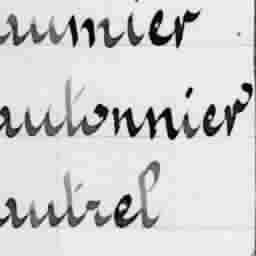 aumier
autonnier
autrel